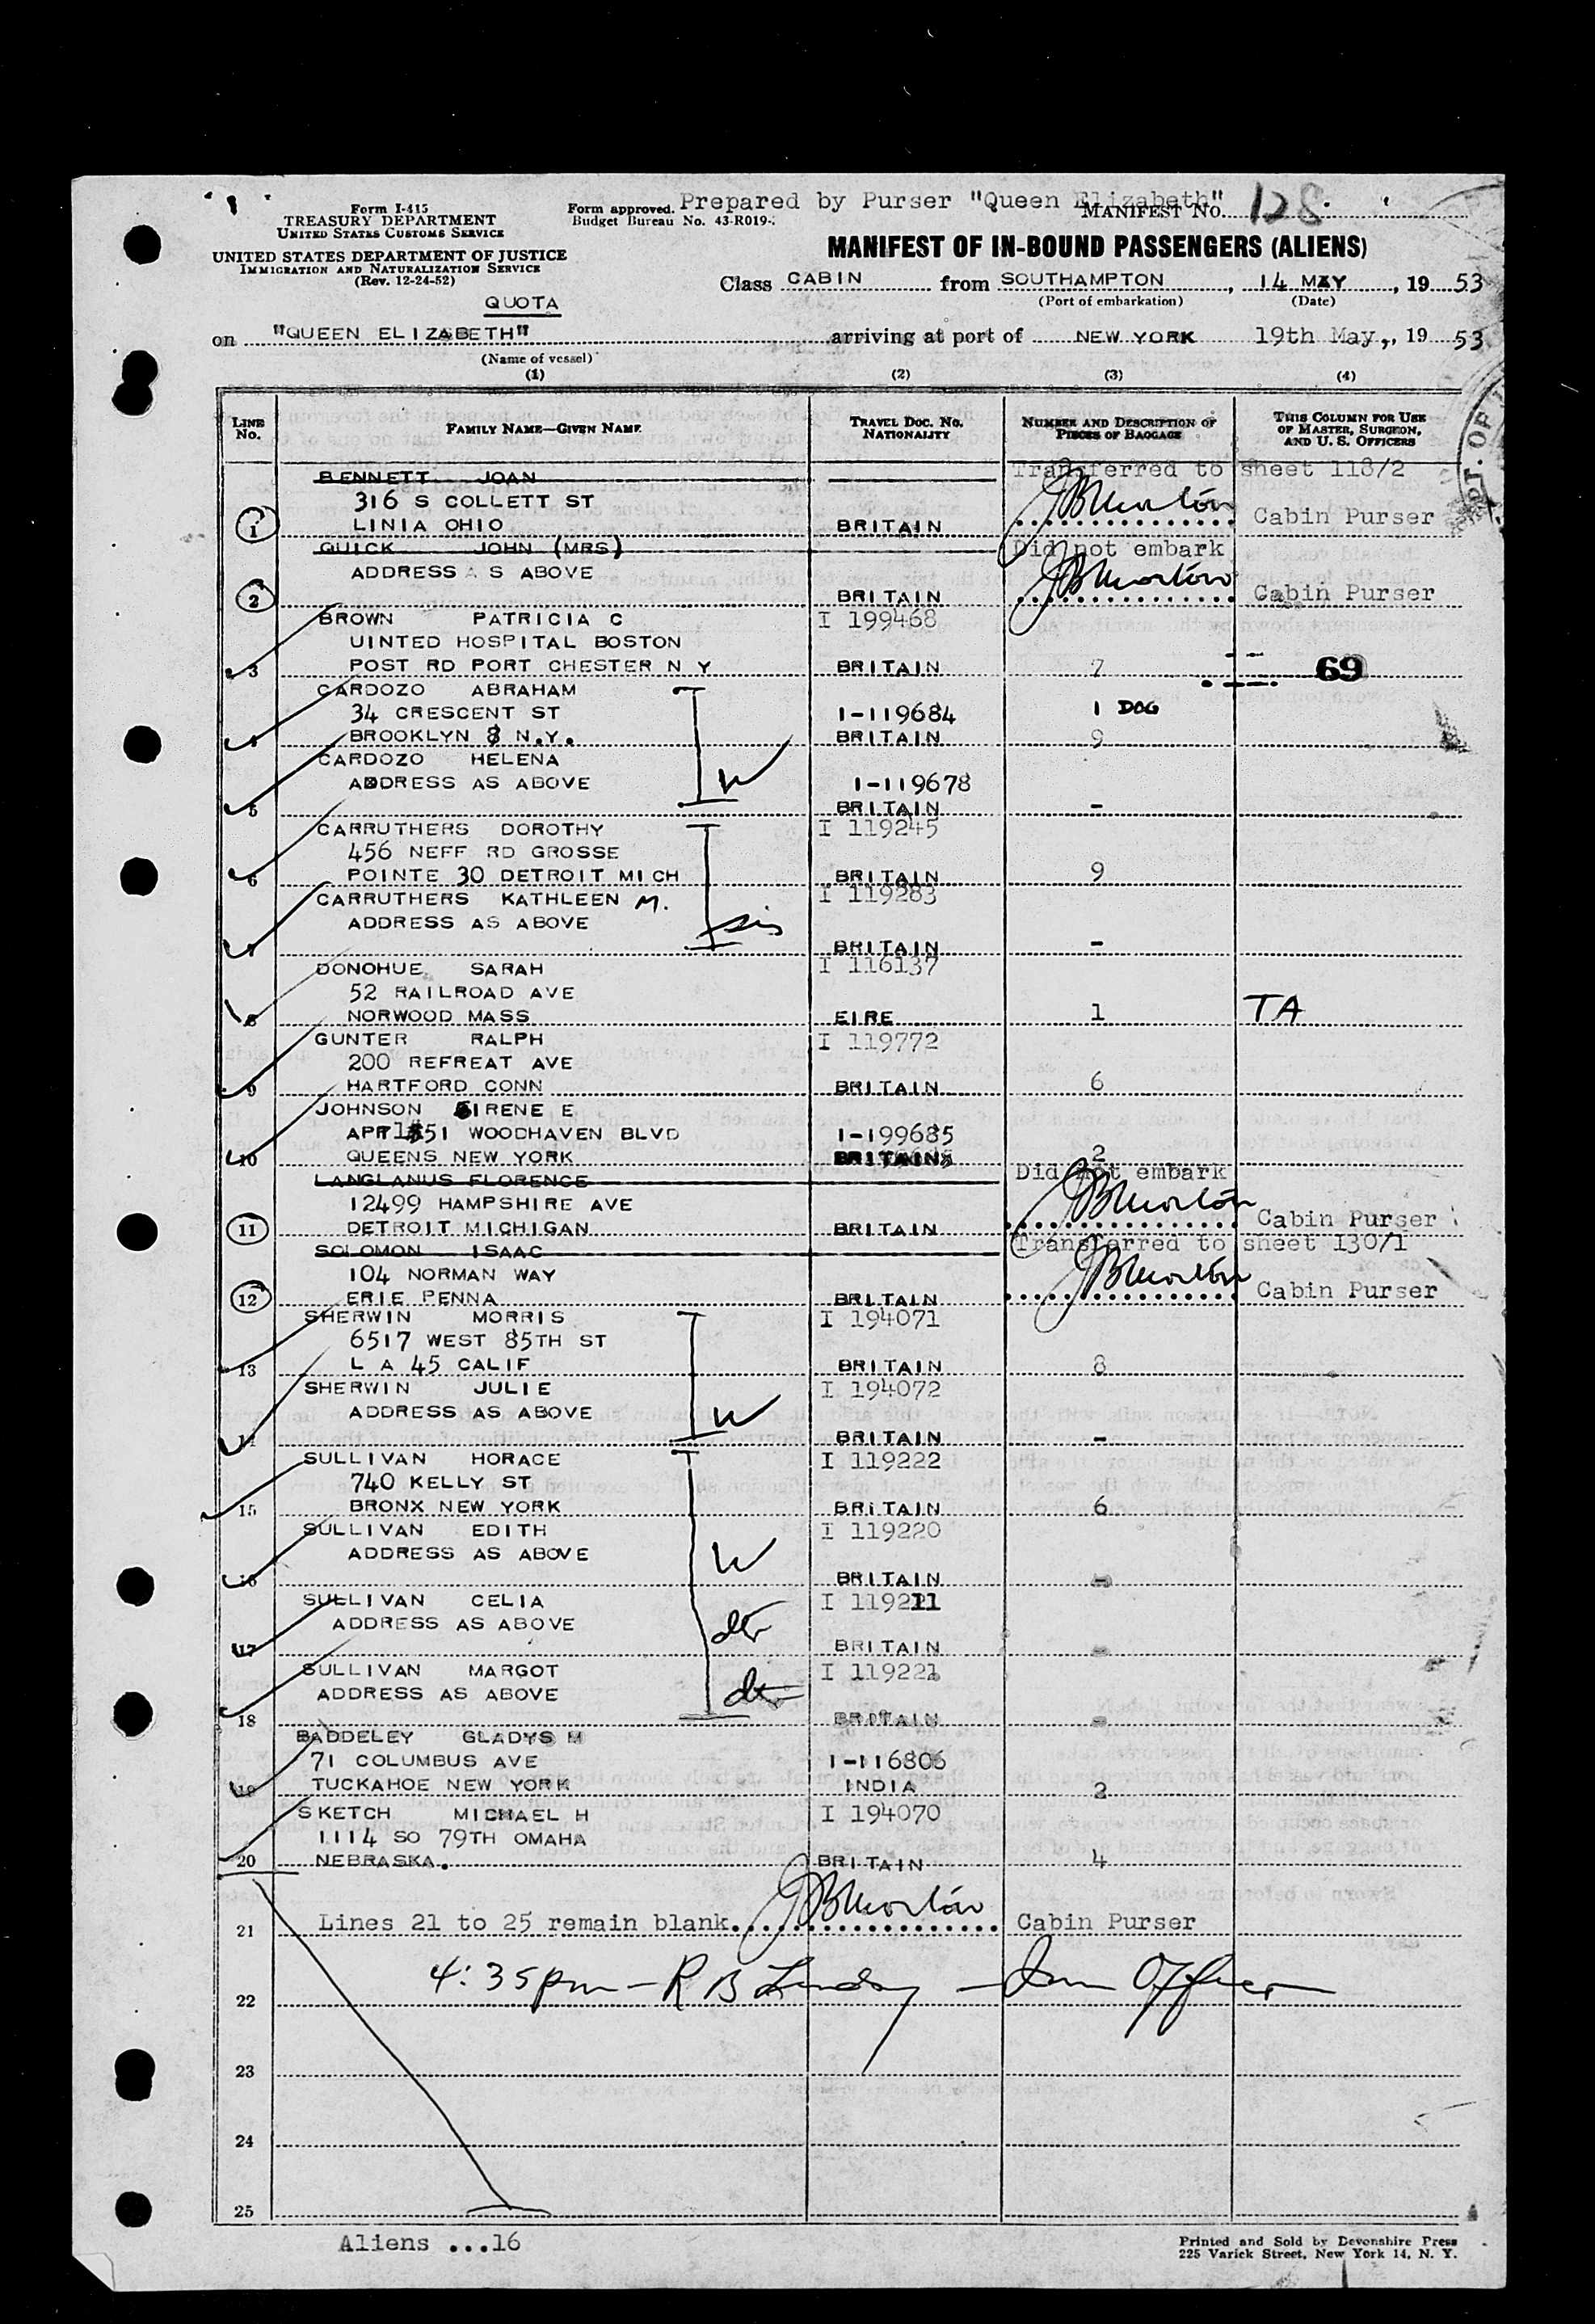 Form I-415
TREASURY DEPARTMENT
UNITED STATES CUSTOMS SERVICE
UNITED STATES DEPARTMENT OF JUSTICE
IMMIGRATION AND NATURALIZATION SERVICE
(Rev. 12-24-52)
QUOTA
Form approved.
Budget Bureau No. 43-R019-
Prepared by Purser "Queen Elizabeth"
MANIFEST No. 128
MANIFEST OF IN-BOUND PASSENGERS (ALIENS)
Class CABIN from SOUTHAMPTON, 14 MAY, 19 53
(Port of embarkation) (Date)
on "QUEEN ELIZABETH" arriving at port of NEW YORK 19th May,, 19 53
(Name of vessel)
(1) (2) (3) (4)
LINE No. FAMILY NAME—GIVEN NAME TRAVEL DOC. NO. NATIONALITY NUMBER AND DESCRIPTION OF PIECES OF BAGGAGE THIS COLUMN FOR USE OF MASTER, SURGEON, AND U. S. OFFICERS
BENNETT JOAN Transferred to sheet 118/2
316 S COLLETT ST JBMorton
1 LINIA OHIO BRITAIN Cabin Purser
QUICK JOHN (MRS) Did not embark
ADDRESS A S ABOVE JBMorton
2 BRITAIN Cabin Purser
BROWN PATRICIA C I 199468
UINTED HOSPITAL BOSTON
3 POST RD PORT CHESTER N Y BRITAIN 7 69
CARDOZO ABRAHAM
34 CRESCENT ST 1-119684 1 DOG
4 BROOKLYN 8 N.Y. BRITAIN 9
CARDOZO HELENA
ADDRESS AS ABOVE W 1-119678
5 BRITAIN -
CARRUTHERS DOROTHY I 119245
456 NEFF RD GROSSE
6 POINTE 30 DETROIT MICH BRITAIN 9
CARRUTHERS KATHLEEN M. I 119283
ADDRESS AS ABOVE sis
7 BRITAIN -
DONOHUE SARAH I 116137
52 RAILROAD AVE
8 NORWOOD MASS EIRE 1 TA
GUNTER RALPH I 119772
200 REFREAT AVE
9 HARTFORD CONN BRITAIN 6
JOHNSON IRENE E
WOODHAVEN BLVD 1-199685
10 QUEENS NEW YORK BRITAIN 2
LANGLANUS FLORENCE Did not embark
12499 HAMPSHIRE AVE JBMorton
11 DETROIT MICHIGAN BRITAIN Cabin Purser
SOLOMON ISAAC Transferred to sheet 130/1
104 NORMAN WAY JBMorton
12 ERIE PENNA BRITAIN Cabin Purser
SHERWIN MORRIS I 194071
6517 WEST 85TH ST
13 L A 45 CALIF BRITAIN 8
SHERWIN JULIE I 194072
ADDRESS AS ABOVE W
14 BRITAIN -
SULLIVAN HORACE I 119222
740 KELLY ST
15 BRONX NEW YORK BRITAIN 6
SULLIVAN EDITH I 119220
ADDRESS AS ABOVE W
16 BRITAIN -
SULLIVAN CELIA
ADDRESS AS ABOVE dtr
17 BRITAIN -
SULLIVAN MARGOT I 119221
ADDRESS AS ABOVE dtr
18 BRITAIN -
BADDELEY GLADYS M
71 COLUMBUS AVE 1-116806
19 TUCKAHOE NEW YORK INDIA 2
SKETCH MICHAEL H I 194070
1114 SO 79TH OMAHA
20 NEBRASKA. BRITAIN 4
21 Lines 21 to 25 remain blank. JBMorton Cabin Purser
4:35pm - R B - Imm Officer
22
23
24
25
Aliens ...16
Printed and Sold by Devonshire Press
225 Varick Street, New York 14, N. Y.